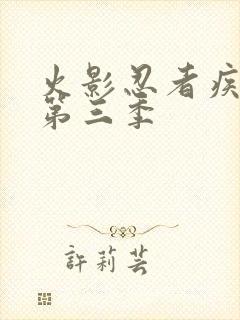 火影忍者疾
第三季
許莉芸